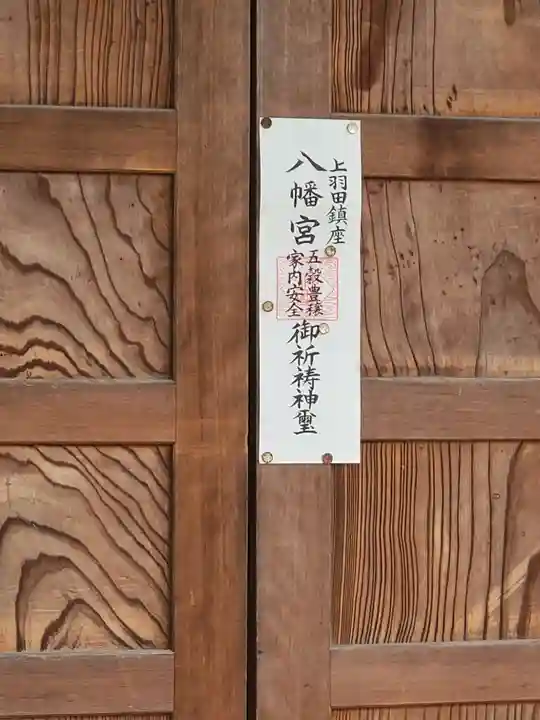 上羽田鎮座
八幡宮
五穀豊穣
家内安全
御祈祷神璽